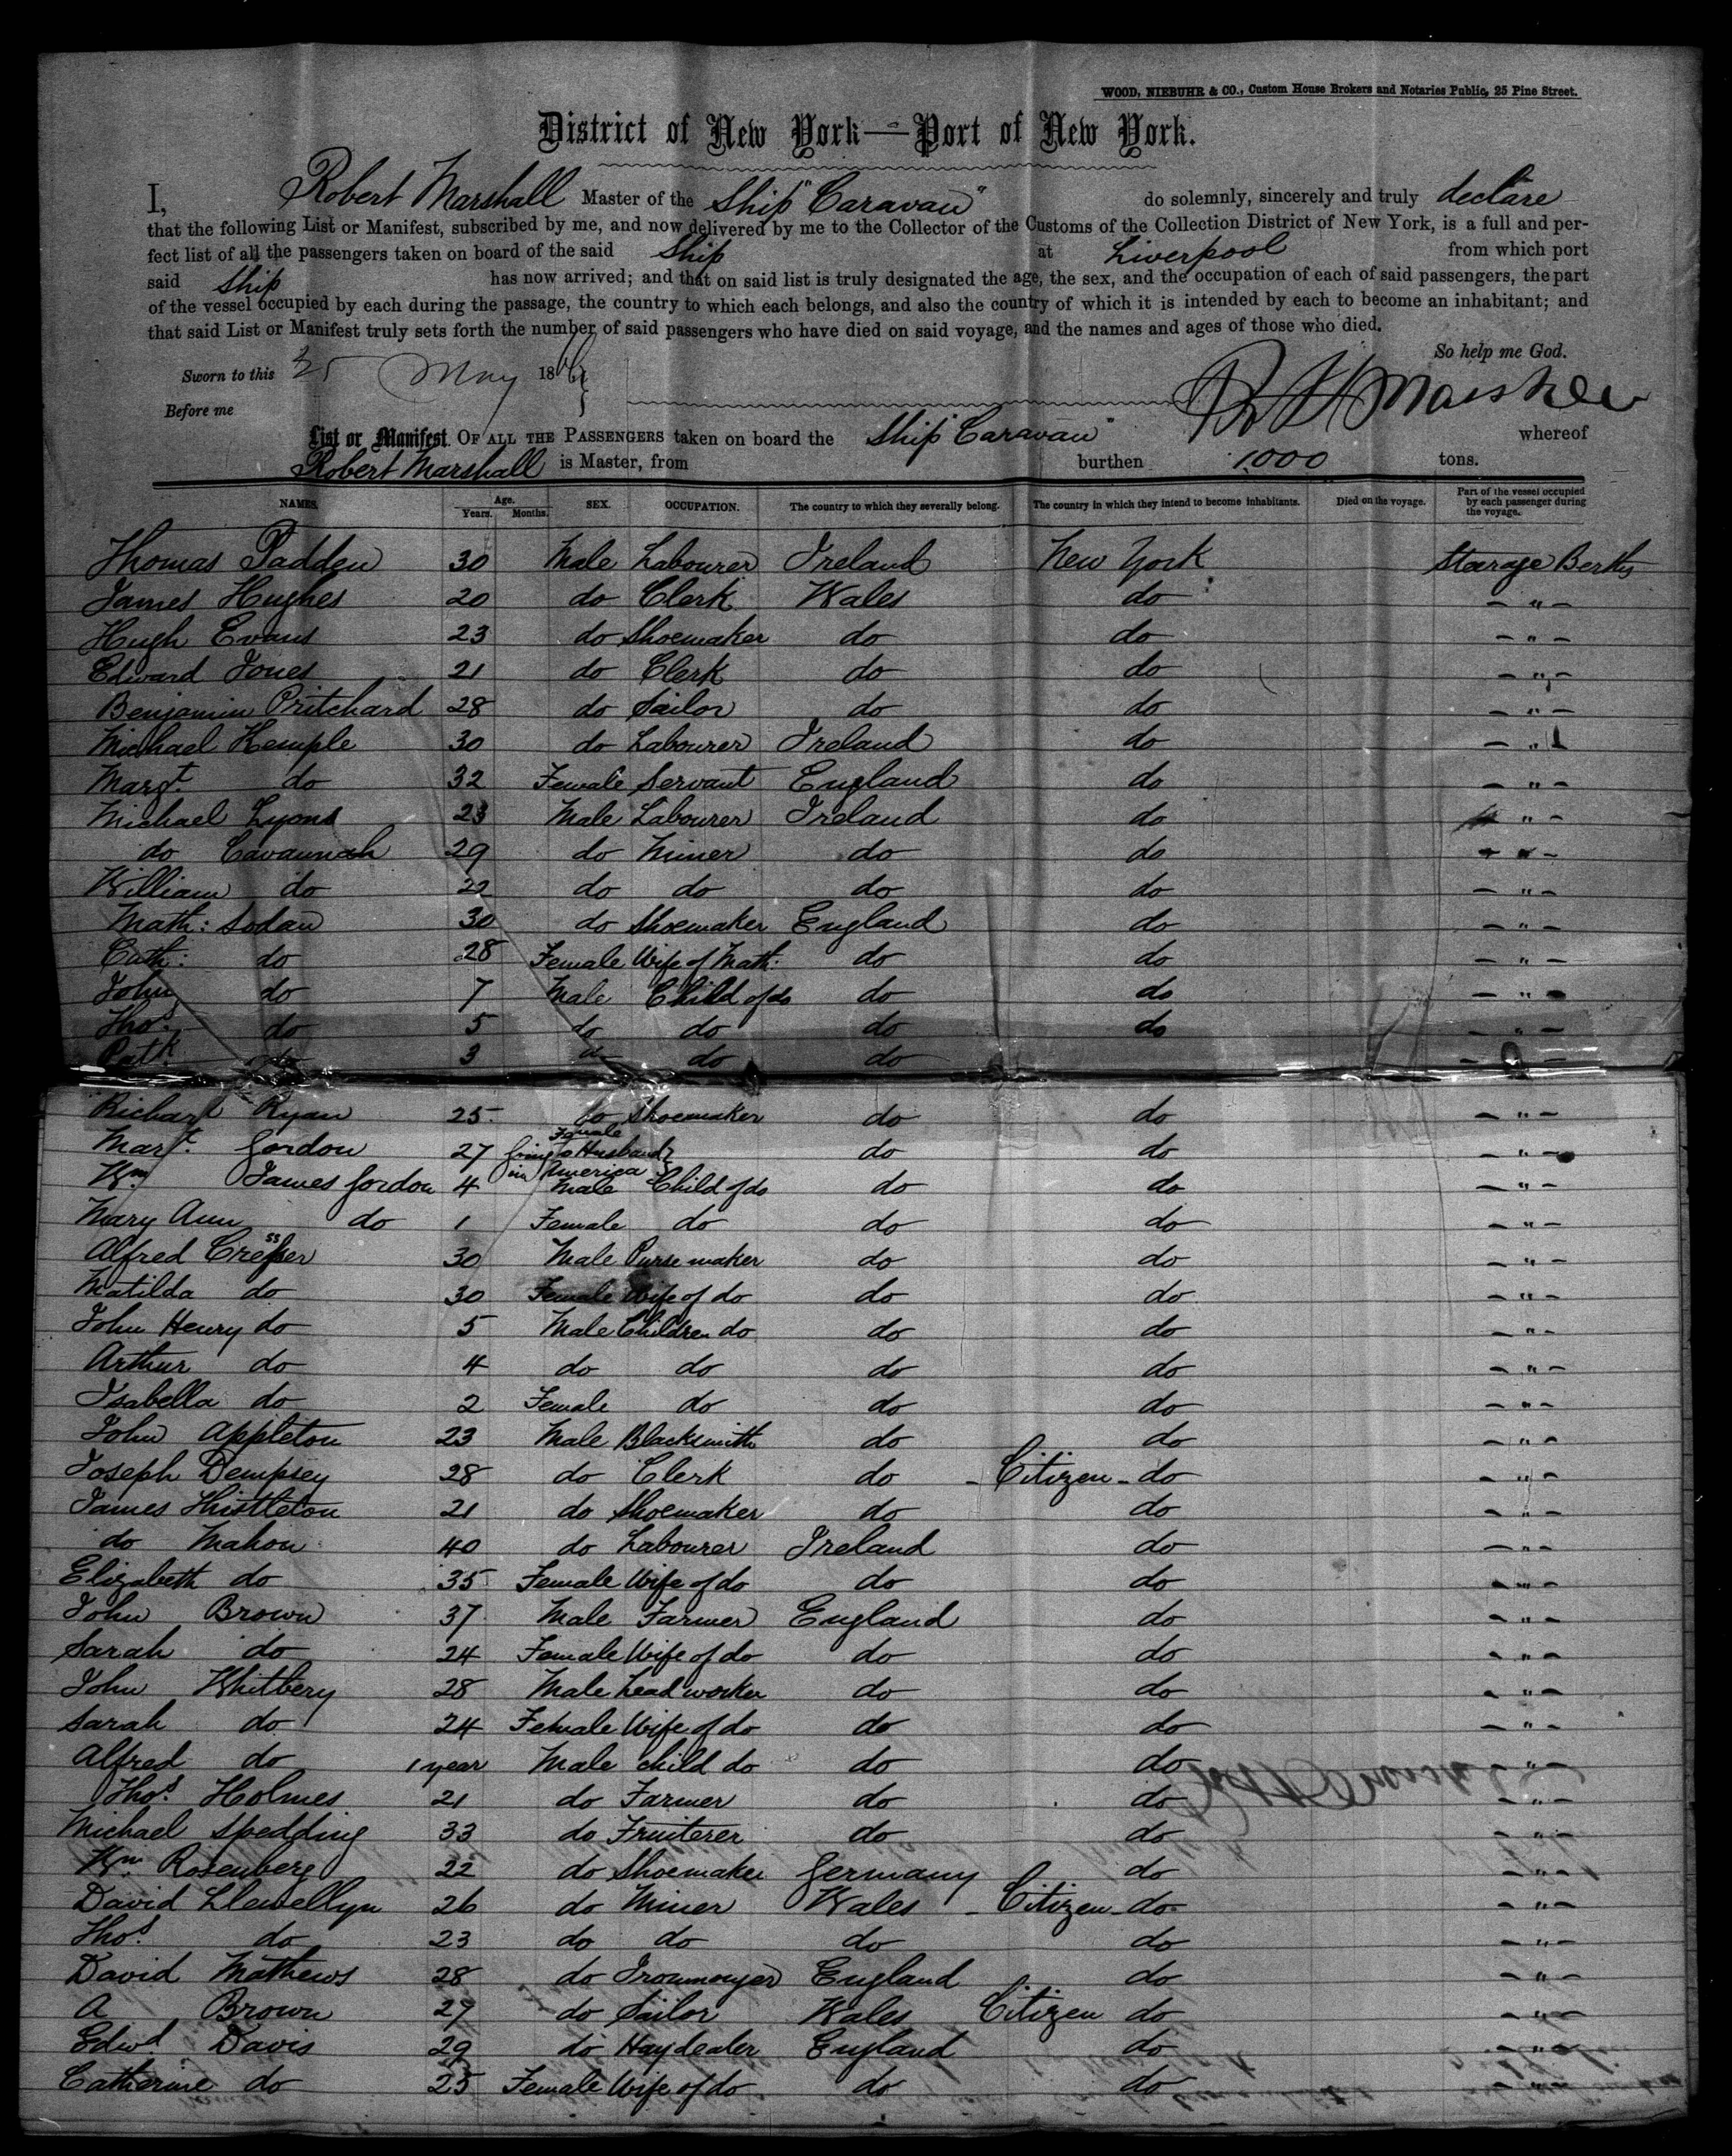 WOOD, NIEBUHR & CO., Custom House Brokers and Notaries Public, 25 Pine Street.
District of New York—Port of New York.
I, Robert Marshall Master of the Ship "Caravan" do solemnly, sincerely and truly declare
that the following List or Manifest, subscribed by me, and now delivered by me to the Collector of the Customs of the Collection District of New York, is a full and per-
fect list of all the passengers taken on board of the said Ship at Liverpool from which port
said Ship has now arrived; and that on said list is truly designated the age, the sex, and the occupation of each of said passengers, the part
of the vessel occupied by each during the passage, the country to which each belongs, and also the country of which it is intended by each to become an inhabitant; and
that said List or Manifest truly sets forth the number of said passengers who have died on said voyage, and the names and ages of those who died.
So help me God.
Sworn to this 25 May 186
Before me
List or Manifest OF ALL THE PASSENGERS taken on board the Ship Caravan" whereof
Robert Marshall is Master, from burthen 1000 tons.
NAMES. Age. Years. Months. SEX. OCCUPATION. The country to which they severally belong. The country in which they intend to become inhabitants. Died on the voyage. Part of the vessel occupied by each passenger during the voyage.
Thomas Padden 30 Male Labourer Ireland New York Stearage Berths
James Hughes 20 do Clerk Wales do - " -
Hugh Evans 23 do Shoemaker do do - " -
Edward Jones 21 do Clerk do do - " -
Benjamin Pritchard 28 do Sailor do do - " -
Michael Kemple 30 do Labourer Ireland do - " -
Margt. do 32 Female Servant England do - " -
Michael Lyons 23 Male Labourer Ireland do - " -
do Cavannah 29 do Miner do do - " -
William do 22 do do do do - " -
Math: Sodan 30 do Shoemaker England do - " -
Cath: do 28 Female Wife of Math: do do - " -
John do 7 Male Child of do do do - " -
Thos. do 5 do do do do - " -
Patk do 3 do do do - " -
Richard Ryan 25 do Shoemaker do do - " -
Mart. Gordon 27 Female going to Husband in America do do - " -
Wm. James Gordon 4 Male Child of do do do - " -
Mary Ann do 1 Female do do do - " -
Alfred Cresser 30 Male Purse maker do do - " -
Matilda do 30 Female Wife of do do do - " -
John Henry do 5 Male Children do do do - " -
Arthur do 4 do do do do - " -
Isabella do 2 Female do do do - " -
John Appleton 23 Male Blacksmith do do - " -
Joseph Dempsey 28 do Clerk do - Citizen - do - " -
James Thistleton 21 do Shoemaker do do - " -
do Mahon 40 do Labourer Ireland do - " -
Elizabeth do 35 Female Wife of do do do - " -
John Brown 37 Male Farmer England do - " -
Sarah do 24 Female Wife of do do do - " -
John Whitbery 28 Male Lead worker do do - " -
Sarah do 24 Female Wife of do do do - " -
Alfred do 1 year Male child do do do - " -
Thos. Holmes 21 do Farmer do do - " -
Michael Spedding 33 do Fruiterer do do - " -
Wm Rosenberg 22 do Shoemaker Germany do - " -
David Llewellyn 26 do Miner Wales - Citizen - do - " -
Thos. do 23 do do do do - " -
David Mathews 28 do Ironmonger England do - " -
A Brown 27 do Sailor Wales Citizen do - " -
Edwd Davis 29 do Hay dealer England do - " -
Catherine do 25 Female Wife of do do do - " -